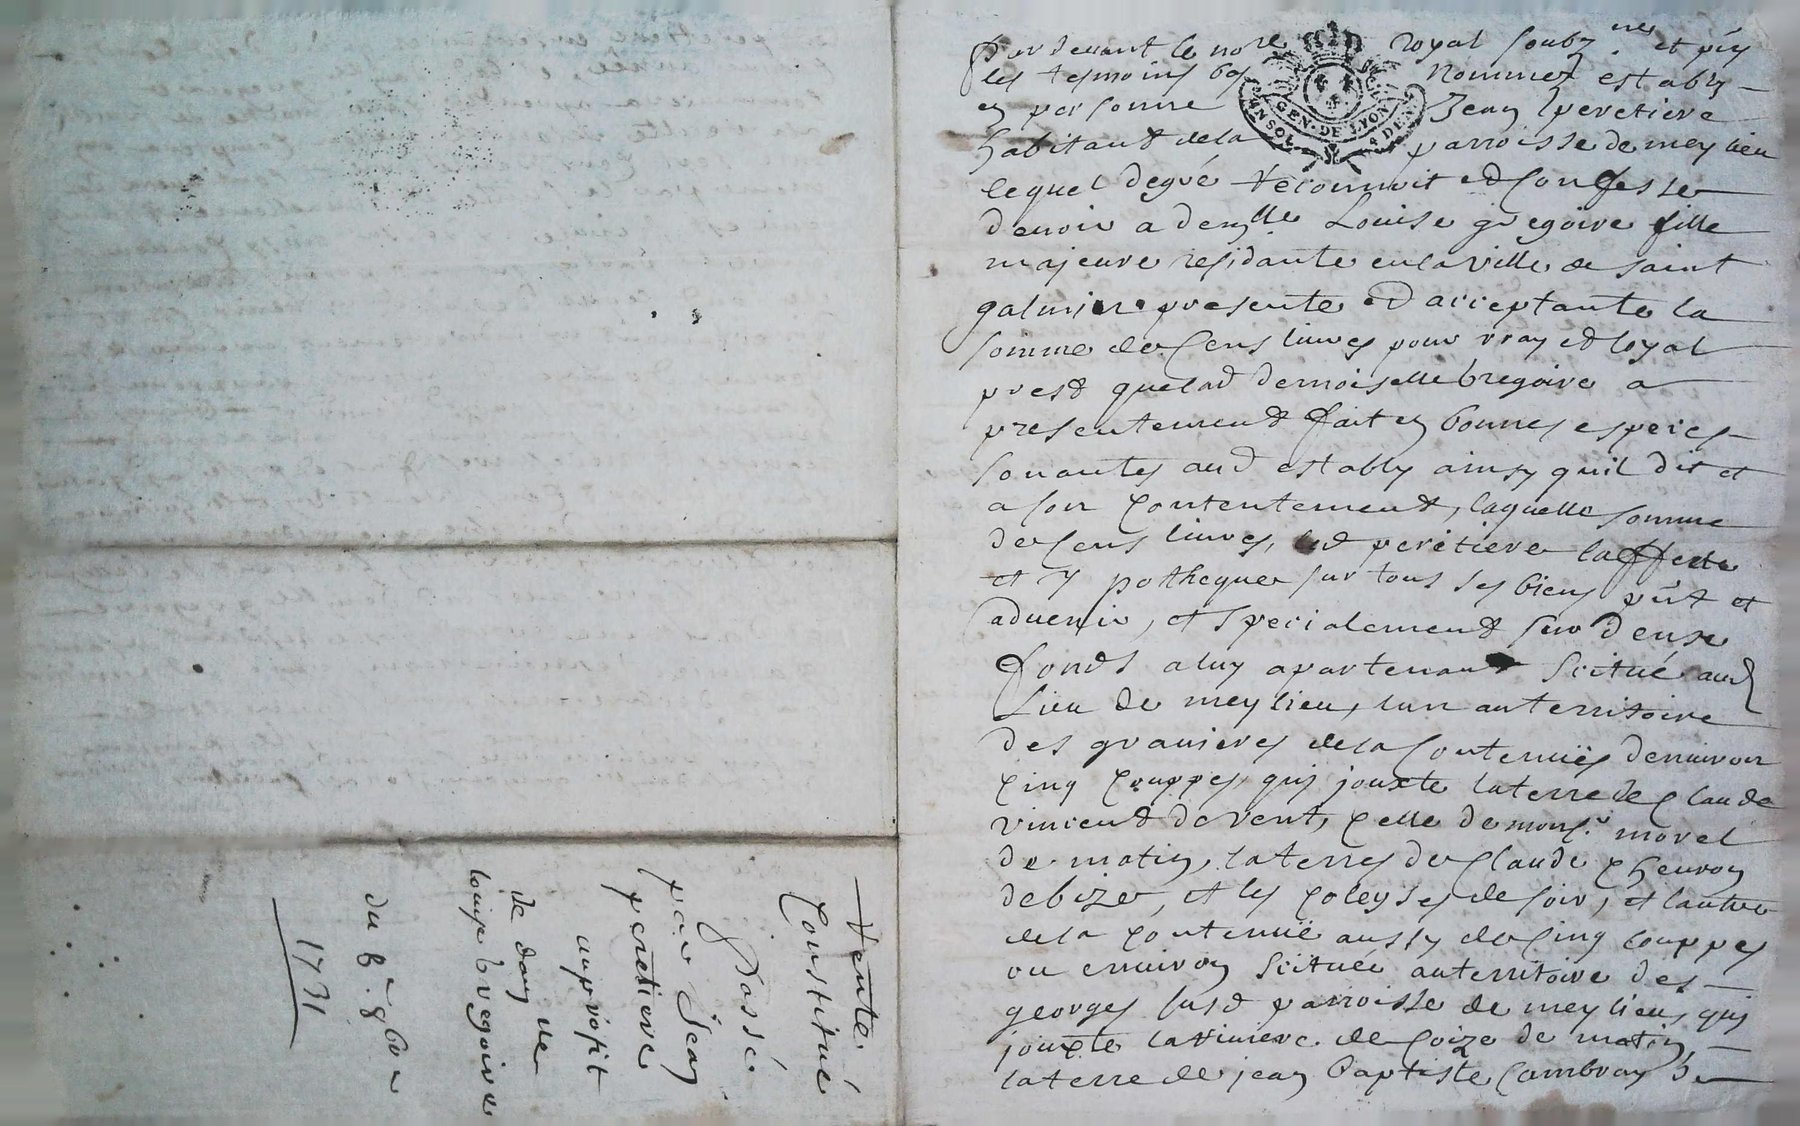 Pardevant le no.re royal soubz.ne et pñs
les tesmoins bas nommez estably
en personne Jean peretiere
GEN · DE LYON
habitant de la parroisse de meylieu
lequel de gré reconnoit et confesse
devoir a dem.lle Louise gregoire fille
majeure residante en la ville de saint
galmier presente et acceptante la
somme de Cens livres pour vray et loyal
prest que lad demoiselle Gregoire a
presentement fait en bonnes especes
sonantes aud estably ainsy quil dit et
a son Contentement, laquelle somme
de Cens livres, led peretiere laffecte
et ypotheque sur tous ses biens pñt et
advenir, et specialement sur deux
fonds a luy apartenant scitué aud
Lieu de meylieu, lun au territoire
des gravieres de la Contenüe denviron
Cinq Couppes, qui jouxte la terre de Claude
vincent de vent, Celle de mons.r morel
de matin, la terre de Claude Chevron
de bize, et les Coleyses de soir, et lautre
de la Contenüe aussy de Cinq couppes
ou environ scituée au territoire des
georges susd parroisse de meylieu, qui
jouxte la riviere de Coize de matin,
la terre de jean Baptiste Cambray de
Vente
Constitué
Passée
par Jean
peretiere
au profit
de dam.lle
Louise Gregoire
du 6.e 8bre
1731